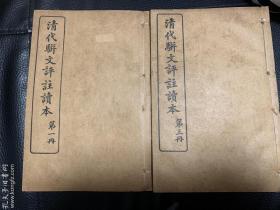 清代駢文評註讀本
第一冊
清代駢文評註讀本
第三冊